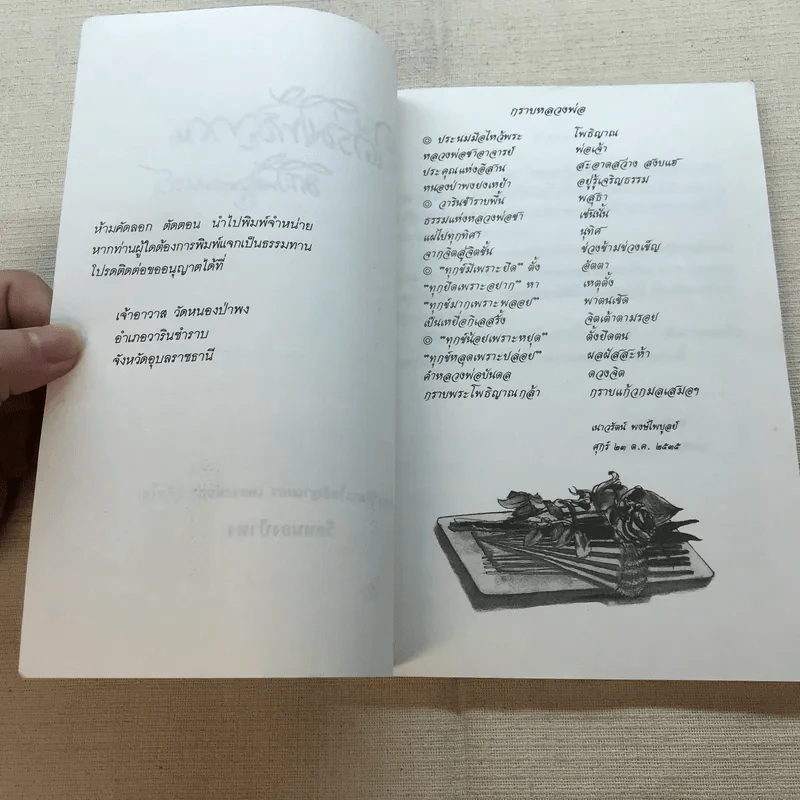 ห้ามคัดลอก ตัดตอน นำไปพิมพ์จำหน่าย
หากท่านผู้ใดต้องการพิมพ์แจกเป็นธรรมทาน
โปรดติดต่อขออนุญาตได้ที่
เจ้าอาวาส วัดหนองป่าพง
อำเภอวารินชำราบ
จังหวัดอุบลราชธานี
กราบหลวงพ่อ
๏ ประนมมือไหว้พระ โพธิญาณ
หลวงพ่อชาอาจารย์ พ่อเจ้า
ประคุณแห่งอีสาน สะอาดสว่าง สงบแฮ
หนองป่าพงยงเหย้า อยู่รู้เจริญธรรม
๏ วารินชำราบพื้น พสุธา
ธรรมแห่งหลวงพ่อชา เช่นนั้น
แผ่ไปทุกทิศา นุทิศ
จากจิตสู่จิตชั้น ช่วงช้ามช่วงเชิญ
๏ "ทุกข์มีเพราะยึด" ตั้ง อัตตา
"ทุกข์ยืดเพราะอยาก" หา เหตุตั้ง
"ทุกข์มากเพราะพลอย" พาตนเชิด
เป็นเหยื่อกิเลสรั้ง จิตเต้าตามรอย
๏ "ทุกข์น้อยเพราะหยุด" ตั้งยึดตน
"ทุกข์หลุดเพราะปล่อย" ผลผัสสะห้า
คำหลวงพ่อบันดล ดวงจิต
กราบพระโพธิญาณกล้า กราบแก้วกมลเสมอฯ
เนาวรัตน์ พงษ์ไพบูลย์
ศุกร์ ๒๓ ต.ค. ๒๕๓๕